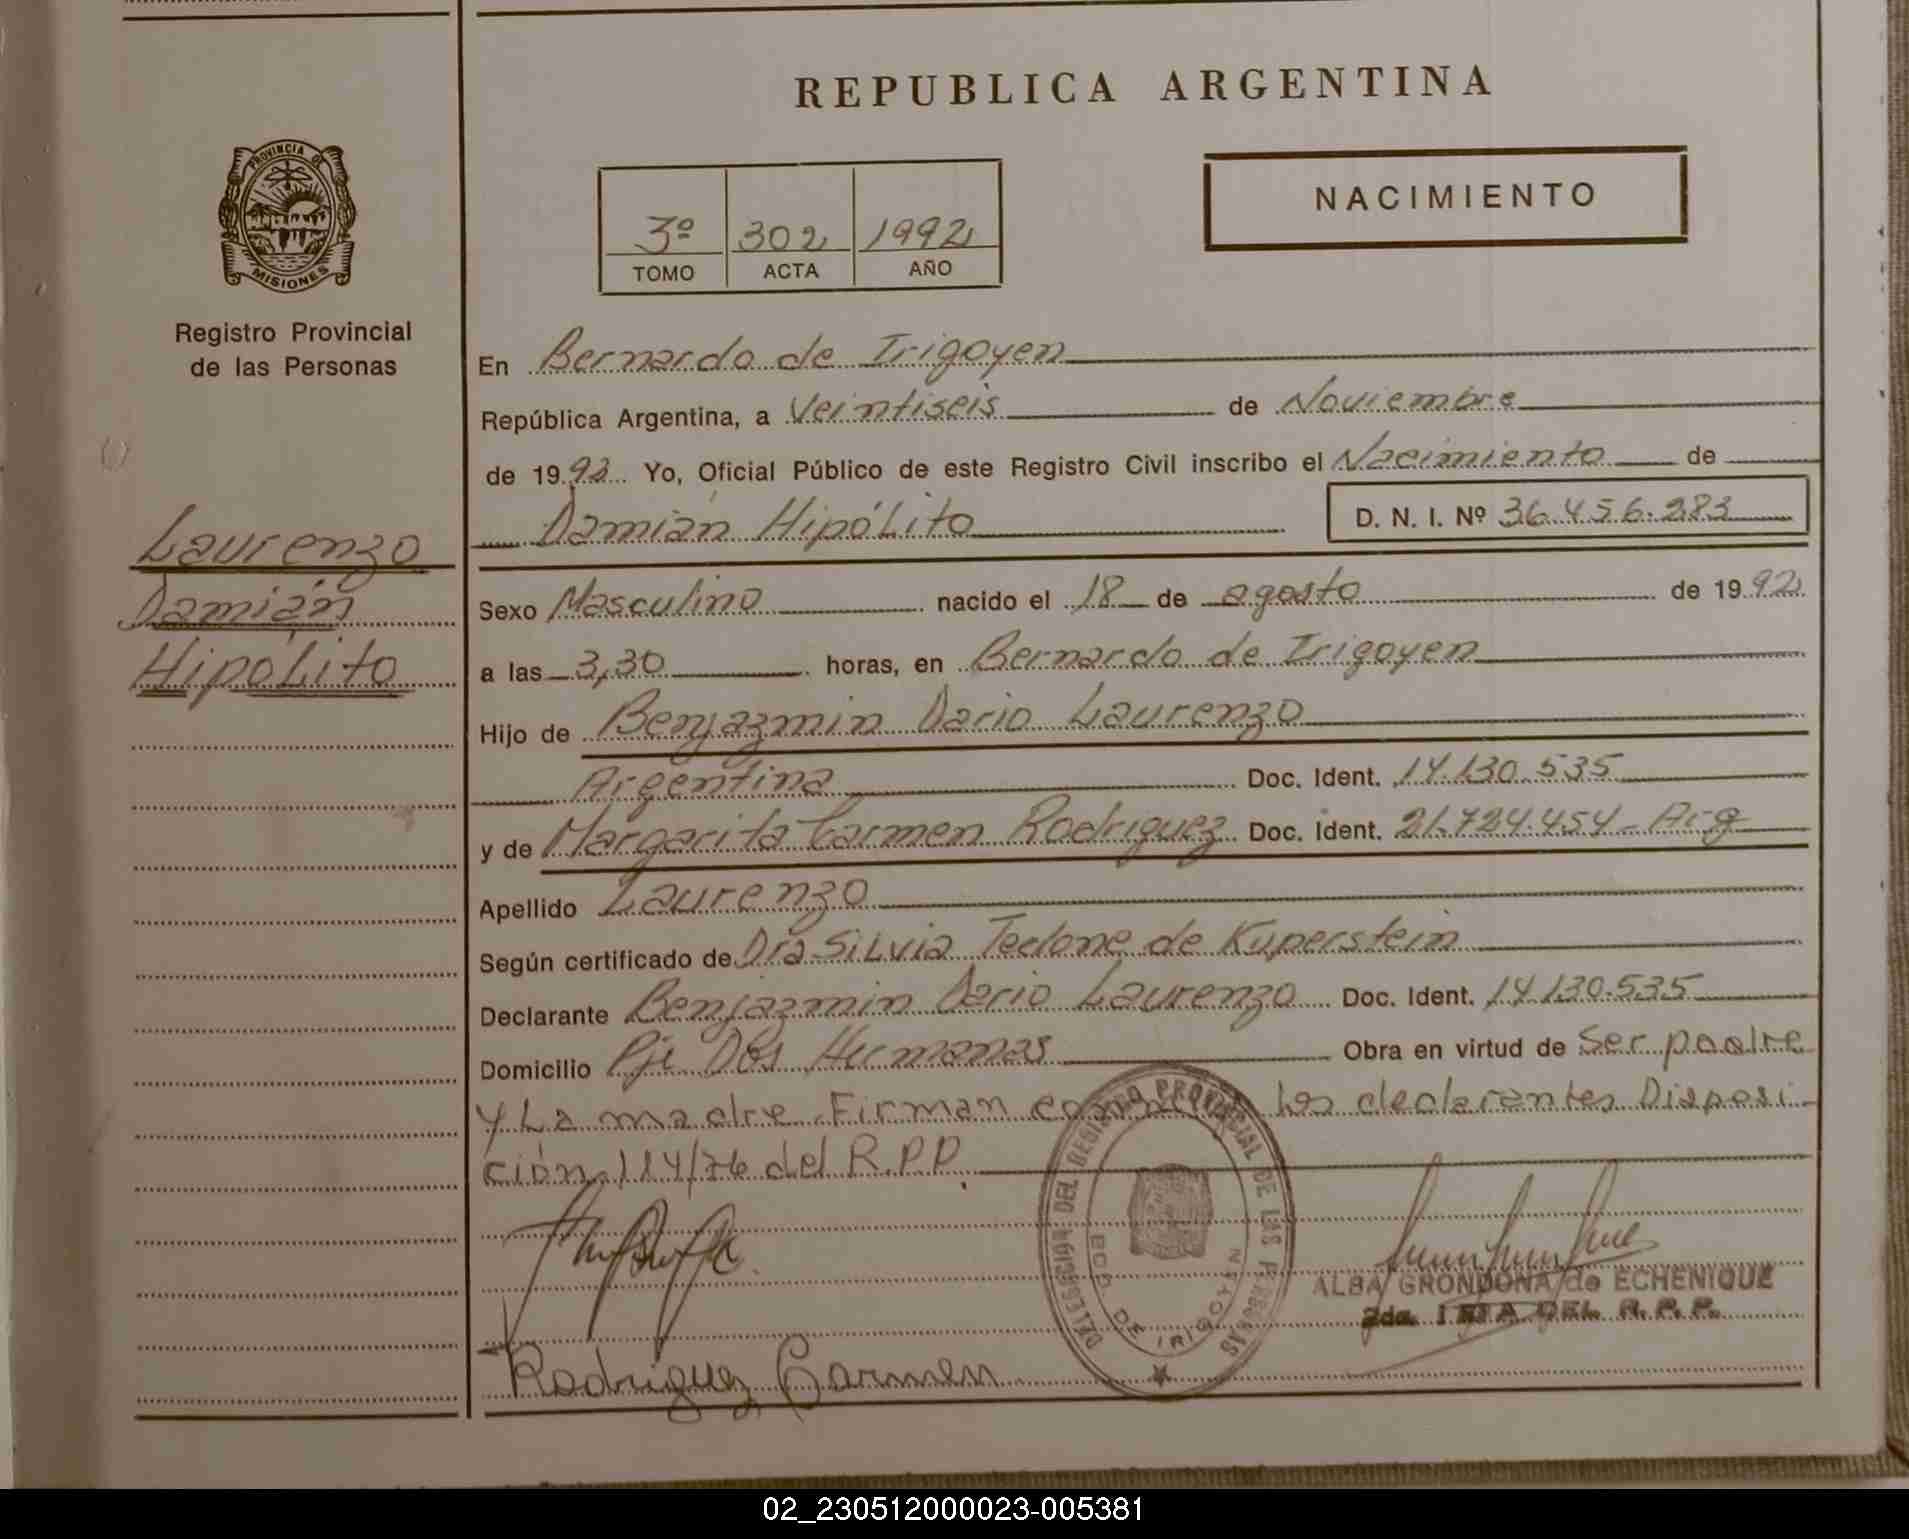 REPUBLICA ARGENTINA
PROVINCIA DE
MISIONES
Registro Provincial
de las Personas
NACIMIENTO
3º 302 1992
TOMO ACTA AÑO
En Bernardo de Irigoyen
República Argentina, a Veintiseis de Noviembre
de 1992 Yo, Oficial Público de este Registro Civil inscribo el Nacimiento de
Damián Hipólito D. N. I. Nº 36.456.283
Laurenzo
Damián
Hipólito
Sexo Masculino nacido el 18 de agosto de 1992
a las 3,30 horas, en Bernardo de Irigoyen
Hijo de Benjazmin Dario Laurenzo
Argentina Doc. Ident. 14.130.535
y de Margarita Carmen Rodriguez Doc. Ident. 21.724.454 - Arg
Apellido Laurenzo
Según certificado de Dra Silvia Tedone de Kuperstein
Declarante Benjazmin Dario Laurenzo Doc. Ident. 14.130.535
Domicilio Pje Dos Hermanas Obra en virtud de Ser padre
y La madre Firman Los declarantes Disposi-
ción 114/76 del R.P.P.
DELEGACION DEL REGISTRO PROVINCIAL DE LAS PERSONAS
BDO. DE IRIGOYEN
ALBA GRONDONA de ECHENIQUE
2da. DEL R.P.P.
Rodriguez Carmen
02_230512000023-005381